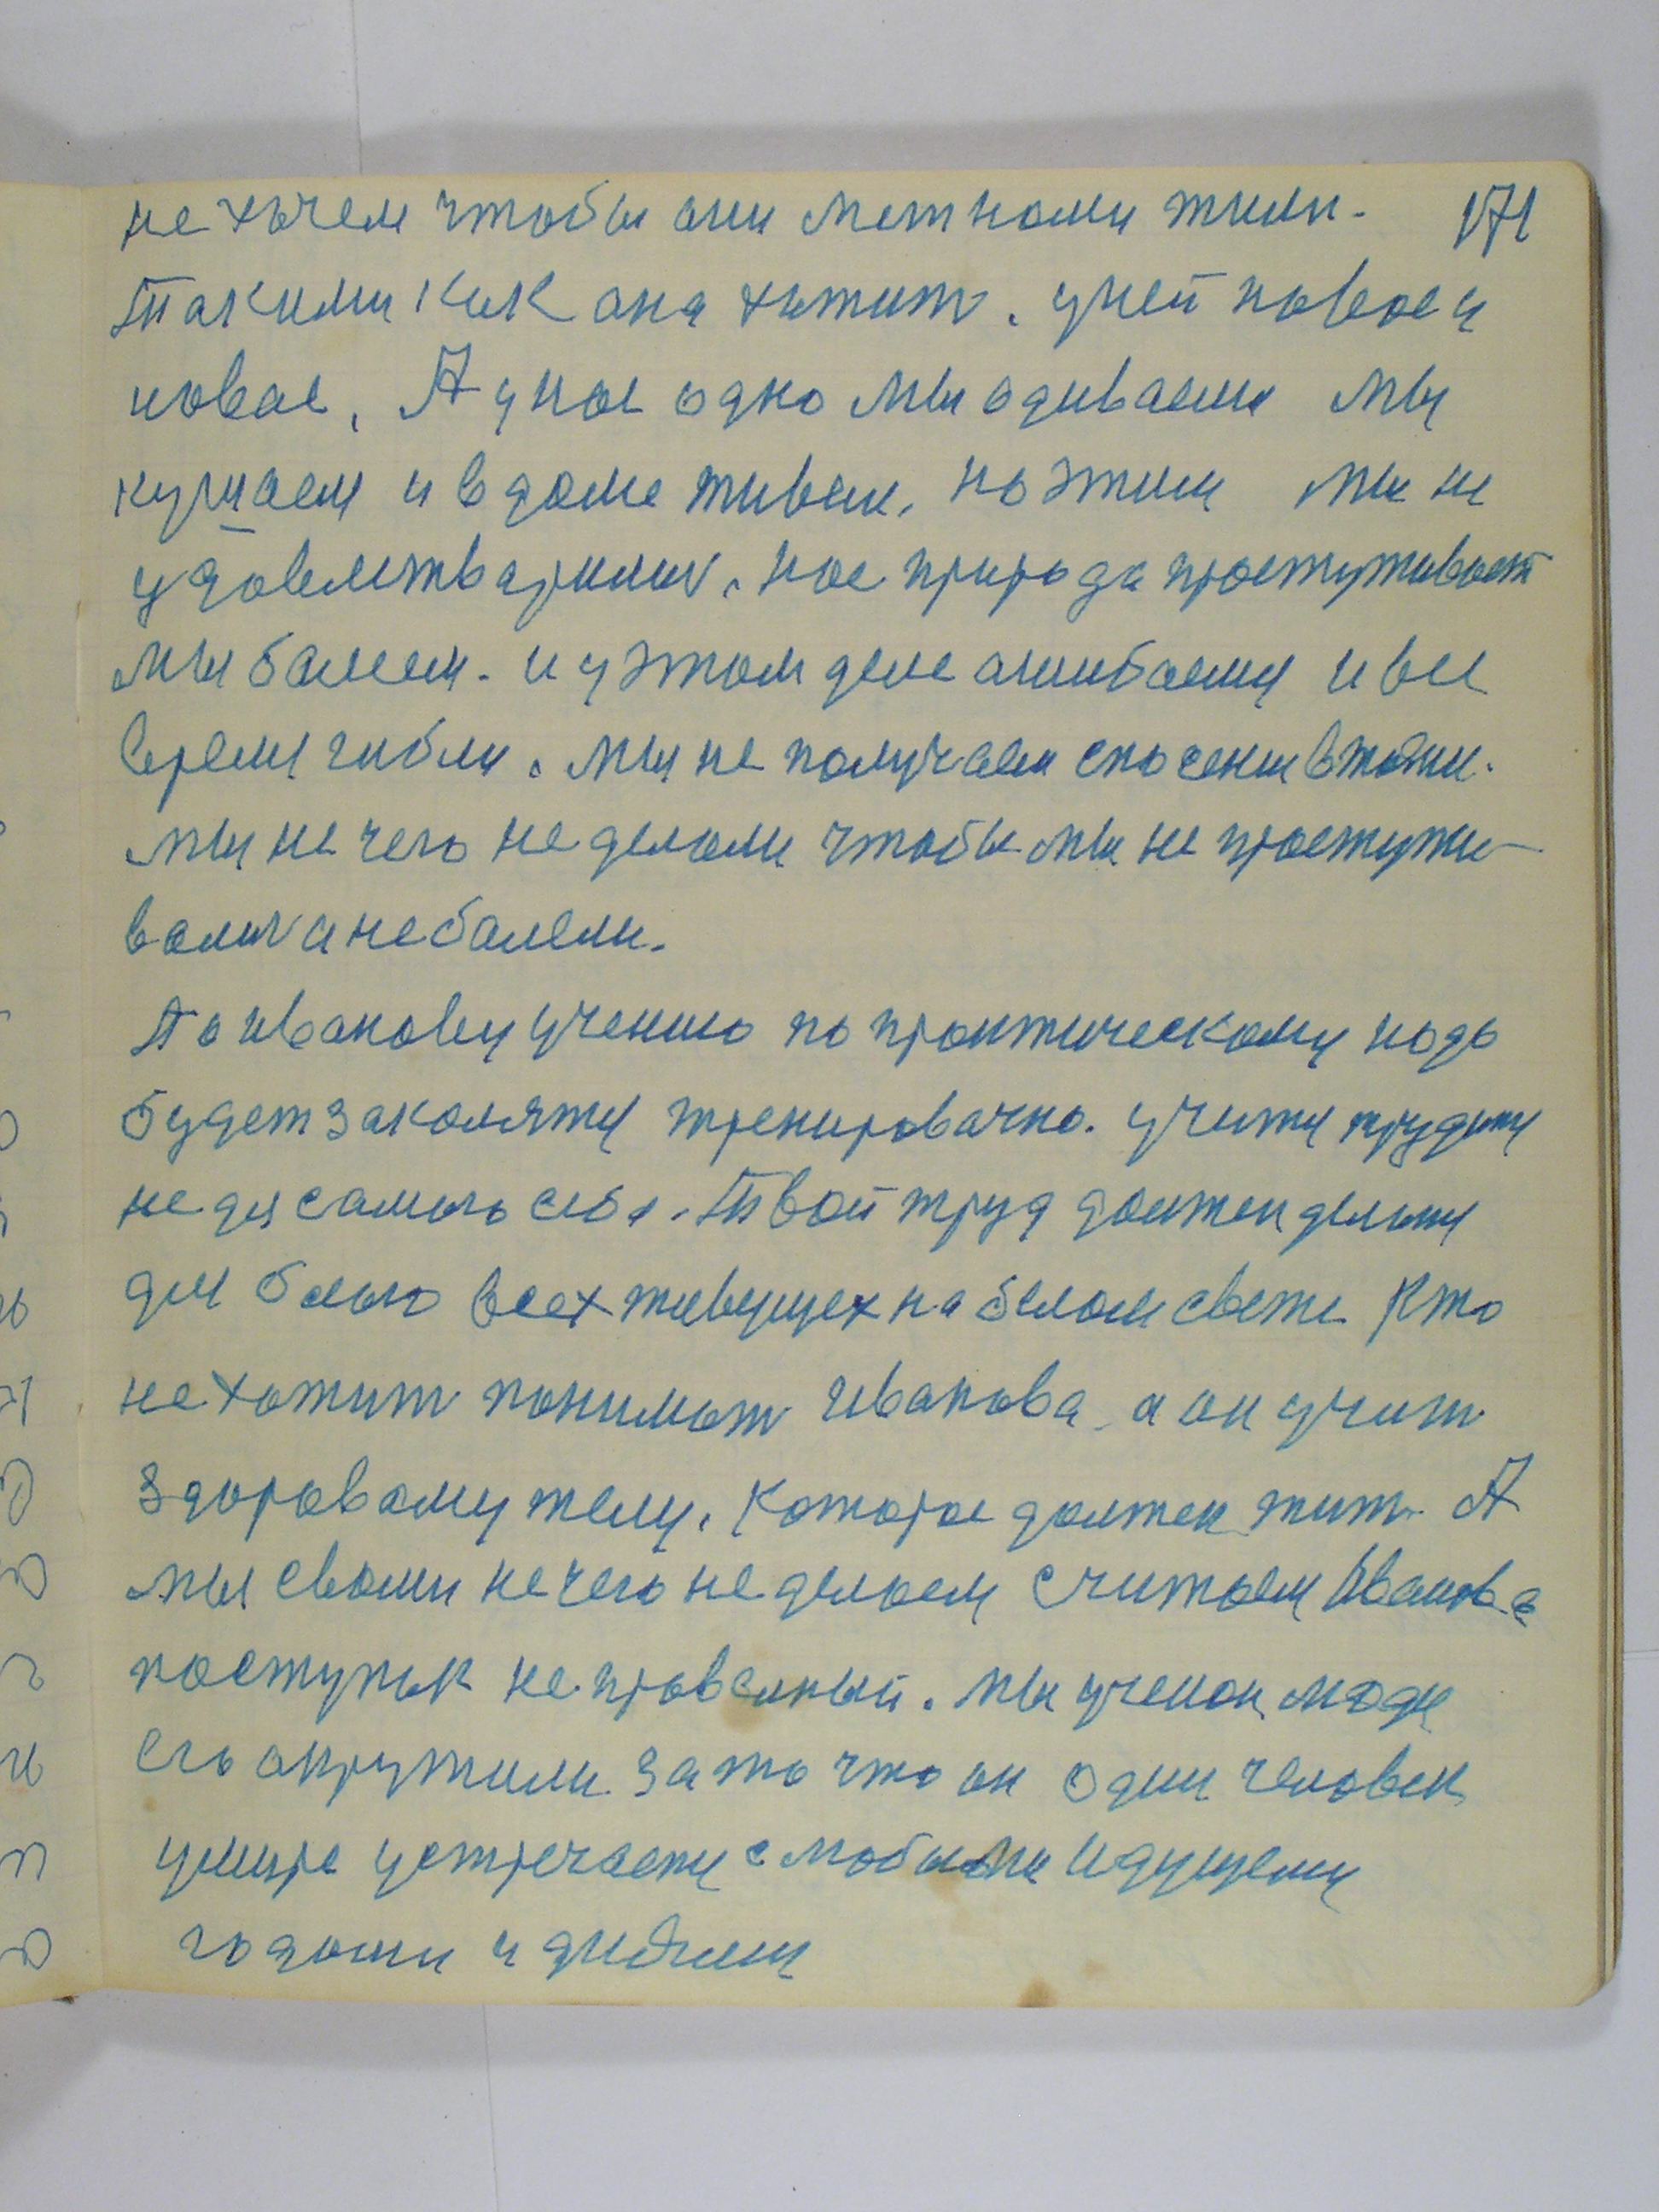 не хочем чтобы они меж нами жили. 171
Такими как она хотит. у ней новое и
новое. А у нас одно мы одиваемя мы
кушаем и в доме живем. но этим мы не
удовлетварились. нас природа простуживает
мы балеем. и у этом деле ашибаемя и все
время гибли. мы не получаем спосения в жизни.
мы не чего не делали чтобы мы не простужи-
вались и не балели.
По Иванову учению по проктическому надо
будет закалятя тренировачно. учитя трудитя
не дя самого себя. Твой труд должен делатя
для блага всех живущех на белом свете кто
не хотит понимать Иванова а он учит
здоровому телу. Которое должен жить. А
мы своми не чего не делаем считаем Иванова
поступок не провельный. мы ученои люди
его окружили за то что он один человек
умире устречаетя с любыми идущеми
годами и днями